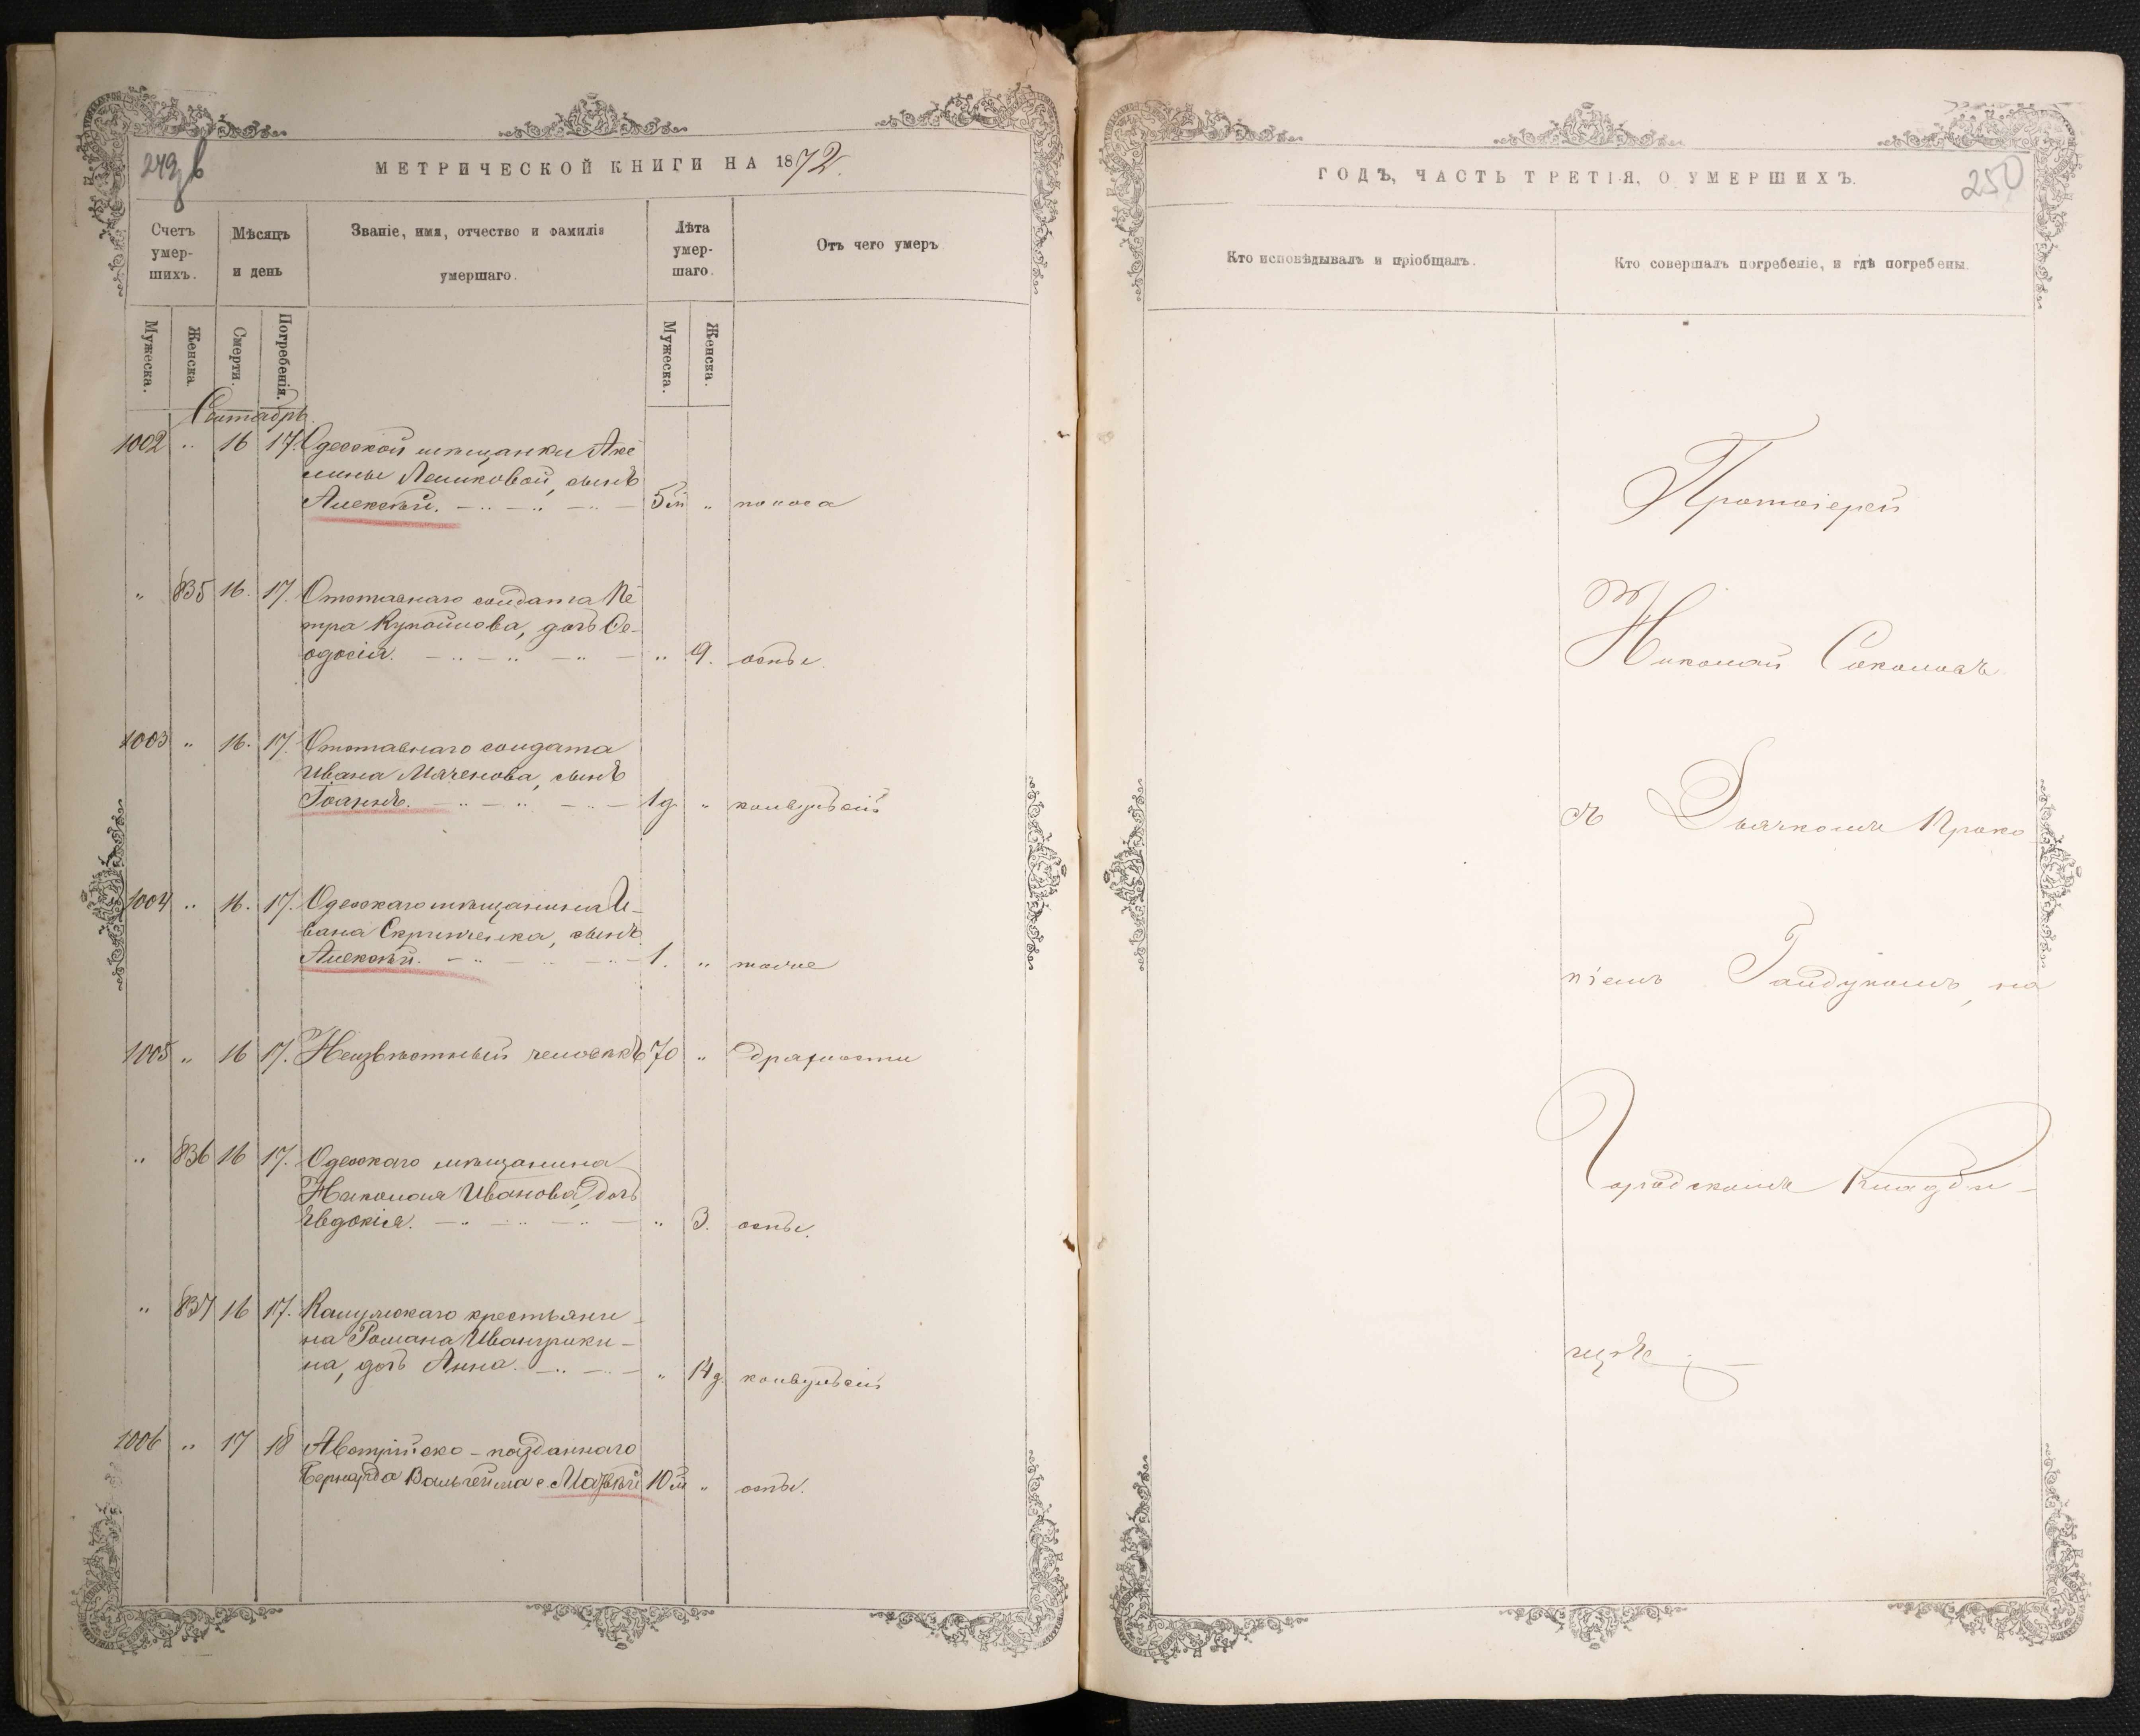 249 в
МЕТРИЧЕСКОЙ КНИГИ НА 1872.
Счетъ умер-шихъ.
Мѣсяцъ и день
Званіе, имя, отчество и фамилія умершаго.
Лѣта умер-шаго.
Отъ чего умеръ
Мужеска.
Женска.
Смерти.
Погребенія.
Мужеска.
Женска.
Сентябрь
1002 „ 16 17. Одесской мѣщанки Аке
лины Лешковой, сынъ
Алексѣй. 5 м „ поноса
„ 835 16. 17. Отставнаго солдата Пе
тра Купойлова, дочь Ѳе-
одосія. „ 9. оспы.
1003 „ 16. 17. Отставнаго солдата
Ивана Мяченова, сынъ
Іоаннъ. 1 д „ конвульсій
1004 „ 16. 17. Одесскаго мѣщанина И-
вана Скринченка, сынъ
Алексѣй. 1. „ тоже
1005 „ 16 17. Неизвѣстный человѣкъ 70 „ дряхлости
„ 836 16 17. Одесскаго мѣщанина
Николая Иванова, дочь
Евдокія. „ 3. оспы.
„ 837 16 17. крестьяни-
на Романа
на, дочь Анна. „ 14 д. конвульсій
1006 „ 17 18 Австрійско-подданнаго
Бернарда с. Матвѣй 10 м „ оспы.
ГОДЪ, ЧАСТЬ ТРЕТІЯ, О УМЕРШИХЪ.
250
Кто исповѣдывалъ и пріобщалъ.
Кто совершалъ погребеніе, и гдѣ погребены.
Протоіерей
Николай Соколовъ
съ Дьячкомъ Проко
піемъ Гайдукомъ, на
Городскомъ Кладби-
щѣ.